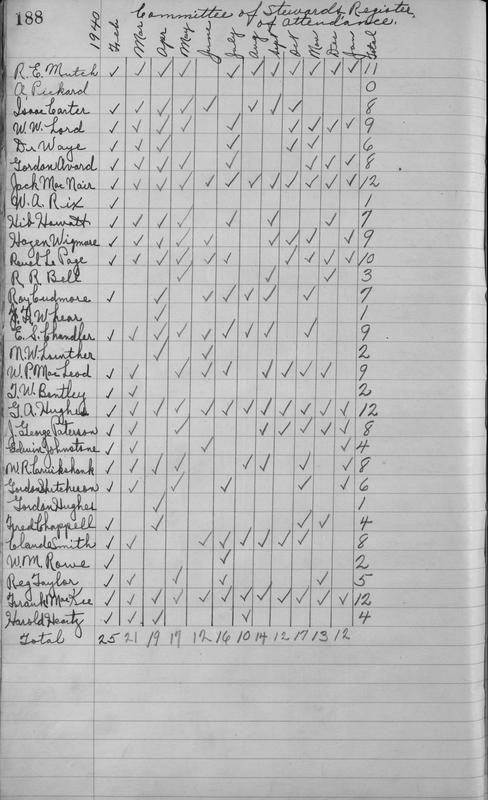 188
Committee of Stewards Register
of attendance.
1940 Feb Mar Apr May June July Aug Sept Oct Nov Dec Jan Total
R. E. Mutch ✓ ✓ ✓ ✓ ✓ ✓ ✓ ✓ ✓ ✓ ✓ 11
A Pickard 0
Isaac Carter ✓ ✓ ✓ ✓ ✓ ✓ ✓ ✓ 8
W. W. Lord ✓ ✓ ✓ ✓ ✓ ✓ ✓ ✓ ✓ 9
Dr Waye ✓ ✓ ✓ ✓ ✓ ✓ 6
Gordon Avard ✓ ✓ ✓ ✓ ✓ ✓ ✓ ✓ 8
Jack MacNair ✓ ✓ ✓ ✓ ✓ ✓ ✓ ✓ ✓ ✓ ✓ ✓ 12
W. A. Rix ✓ 1
Hib Howatt ✓ ✓ ✓ ✓ ✓ ✓ ✓ 7
Hazen Wigmore ✓ ✓ ✓ ✓ ✓ ✓ ✓ ✓ ✓ 9
Reuel LePage ✓ ✓ ✓ ✓ ✓ ✓ ✓ ✓ ✓ ✓ 10
R R Bell ✓ ✓ ✓ 3
Roy Cudmore ✓ ✓ ✓ ✓ ✓ ✓ ✓ 7
Whear ✓ 1
E. S. Chandler ✓ ✓ ✓ ✓ ✓ ✓ ✓ ✓ ✓ 9
M. W. Lowther ✓ ✓ 2
W. P. MacLeod ✓ ✓ ✓ ✓ ✓ ✓ ✓ ✓ ✓ 9
T. W. Bentley ✓ ✓ 2
G. A. Hughes ✓ ✓ ✓ ✓ ✓ ✓ ✓ ✓ ✓ ✓ ✓ ✓ 12
J. George Paterson ✓ ✓ ✓ ✓ ✓ ✓ ✓ ✓ 8
Edwin Johnstone ✓ ✓ ✓ ✓ 4
W. R. Cruickshank ✓ ✓ ✓ ✓ ✓ ✓ ✓ ✓ 8
Gordon Hutcheson ✓ ✓ ✓ ✓ ✓ ✓ 6
Gordon Hughes ✓ 1
Fred Chappell ✓ ✓ ✓ ✓ 4
Claude Smith ✓ ✓ ✓ ✓ ✓ ✓ ✓ ✓ 8
W. M. Rowe ✓ ✓ 2
Reg Taylor ✓ ✓ ✓ ✓ ✓ 5
Frank MacKie ✓ ✓ ✓ ✓ ✓ ✓ ✓ ✓ ✓ ✓ ✓ ✓ 12
Harold Heartz ✓ ✓ ✓ ✓ 4
Total 25 21 19 17 12 16 10 14 12 17 13 12